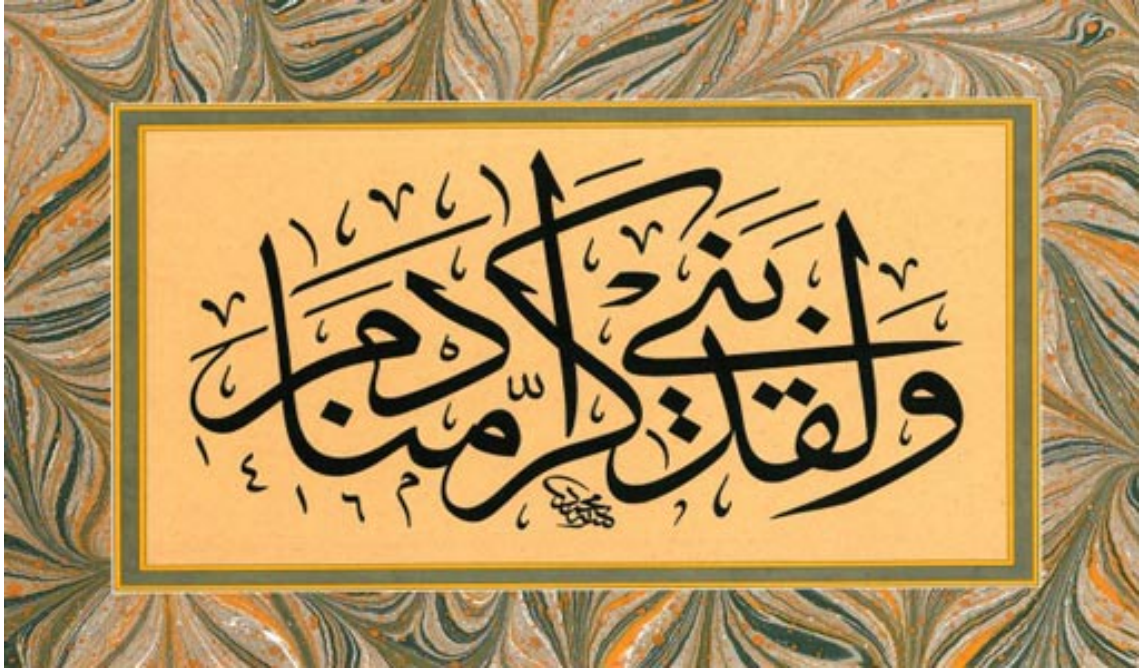 وَلَقَدْ كَرَّمْنَا بَنِي آدَمَ
١٤١٦